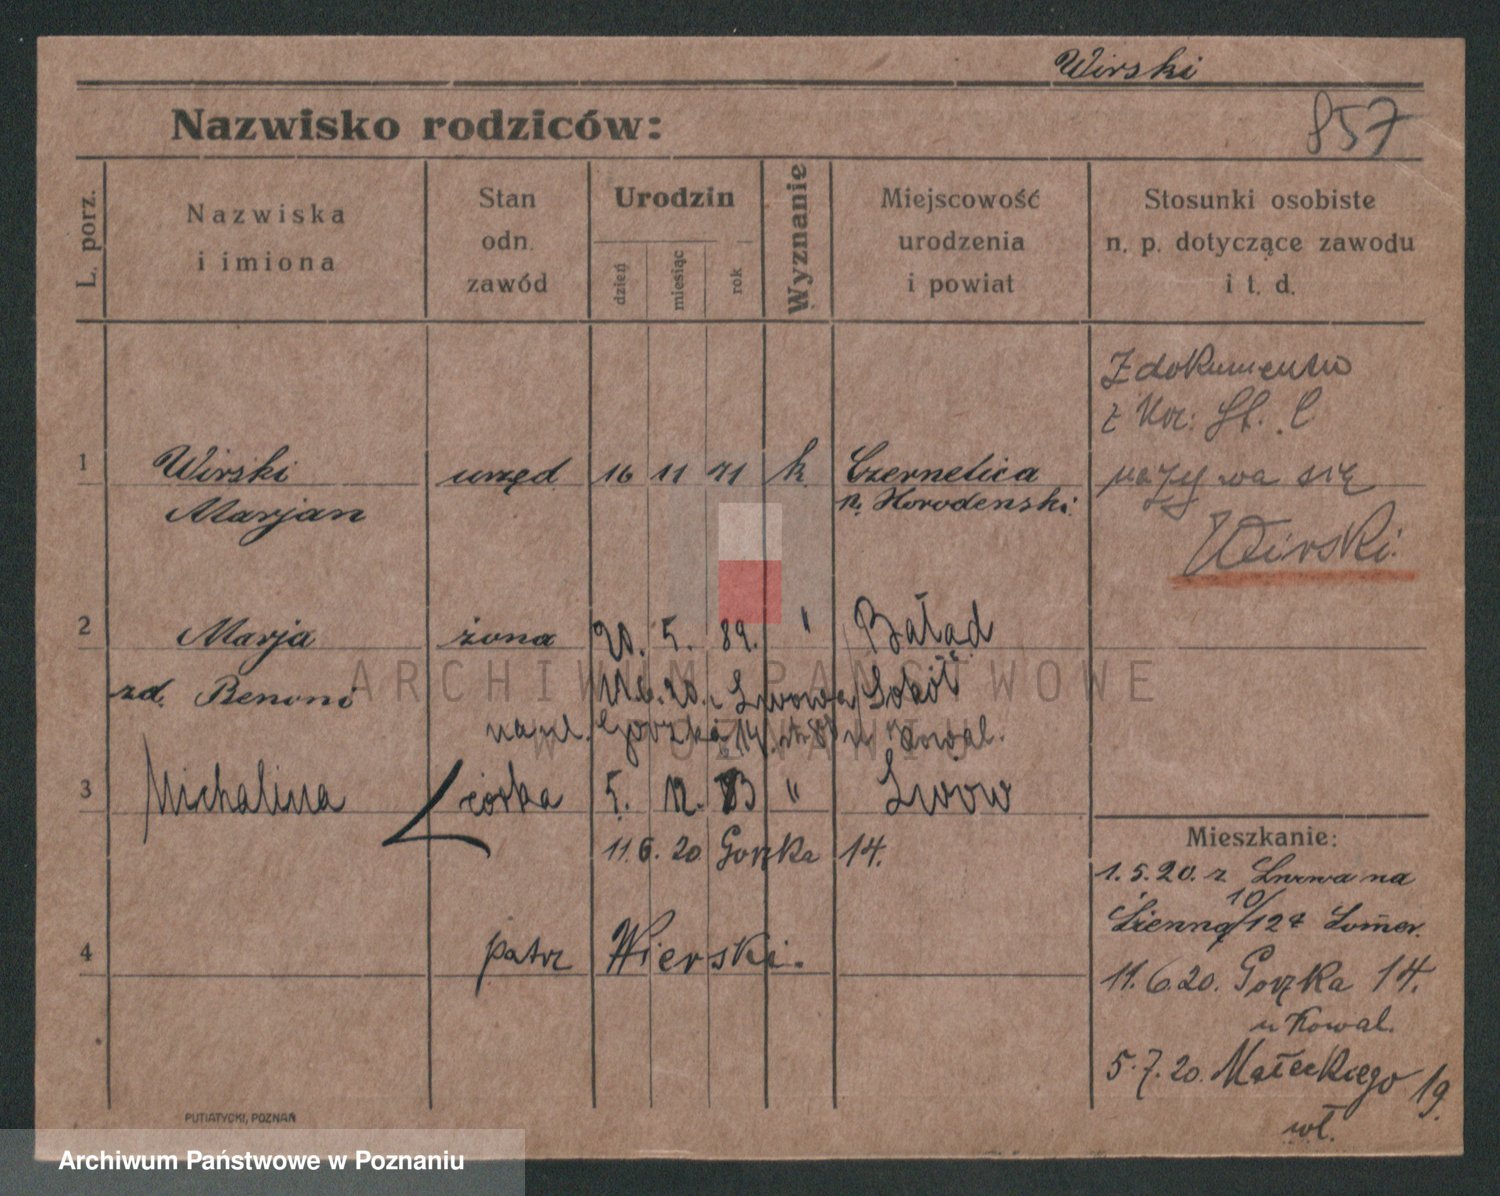 Wirski
Nazwisko rodziców:
857
L. porz.
Nazwiska
i imiona
Stan
odn.
zawód
Urodzin
dzień
miesiąc
rok
Wyznanie
Miejscowość
urodzenia
i powiat
Stosunki osobiste
n. p. dotyczące zawodu
i t. d.
Z dokumentów
z
nazywa się
Wirski.
1
Wirski urzęd. 16 11 71 k. Czernelica
Marjan p. Horodenski.
2
Marja żona 20. 5. 89. " Bałąd
zd. Benoni 11.6.20. z Lwowa Sokół
na pl. Gorzka 14. u Kowal.
3
Michalina córka 5. 12. " Lwow
11.6.20 Gorzka 14.
4
patrz Wierski.
Mieszkanie:
1.5.20. z Lwowa na
10/
Sienną 12
11.6.20. Gorzka 14.
u Kowal.
5.7.20. Małeckiego 19.
wł.
PUTIATYCKI, POZNAŃ
ARCHIWUM PAŃSTWOWE
W POZNANIU
Archiwum Państwowe w Poznaniu